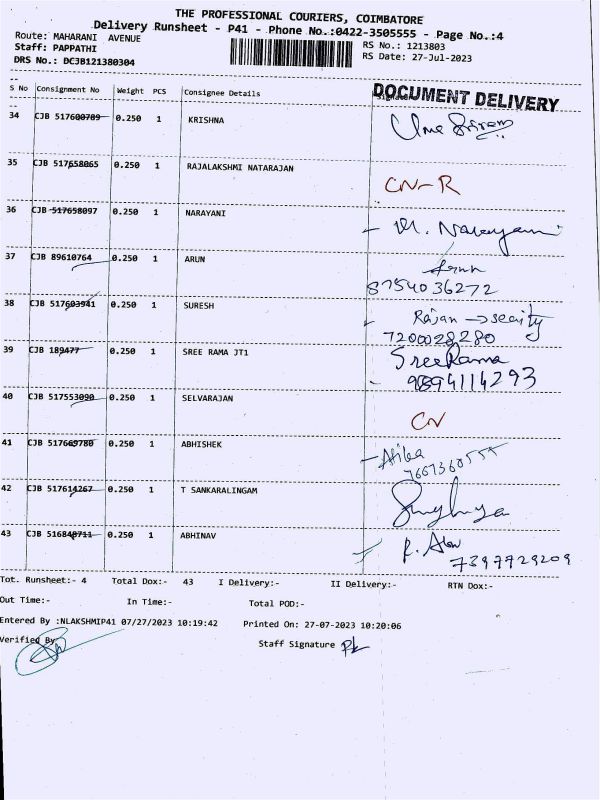 THE PROFESSIONAL COURIERS, COIMBATORE
Delivery Runsheet - P41 - Phone No.:0422-3505555 - Page No.:4
Route: MAHARANI AVENUE
RS No.: 1213803
Staff: PAPPATHI
RS Date: 27-Jul-2023
DRS No.: DCJB121380304
DOCUMENT DELIVERY
S No Consignment No Weight PCS Consignee Details
34 CJB 517600789 0.250 1 KRISHNA Uma Sriram
35 CJB 517658065 0.250 1 RAJALAKSHMI NATARAJAN CN-R
36 CJB 517658097 0.250 1 NARAYANI M. Narayani
37 CJB 89610764 0.250 1 ARUN Arun
8754036272
38 CJB 517603941 0.250 1 SURESH Rajan → secity
7200028280
39 CJB 189477 0.250 1 SREE RAMA JT1 Sree Rama
9894114293
40 CJB 517553090 0.250 1 SELVARAJAN CN
41 CJB 517669780 0.250 1 ABHISHEK
42 CJB 517614267 0.250 1 T SANKARALINGAM
43 CJB 0.250 1 ABHINAV
7397729209
Tot. Runsheet:- 4 Total Dox:- 43 I Delivery:- II Delivery:- RTN Dox:-
Out Time:- In Time:- Total POD:-
Entered By :NLAKSHMIP41 07/27/2023 10:19:42 Printed On: 27-07-2023 10:20:06
Verified By Staff Signature